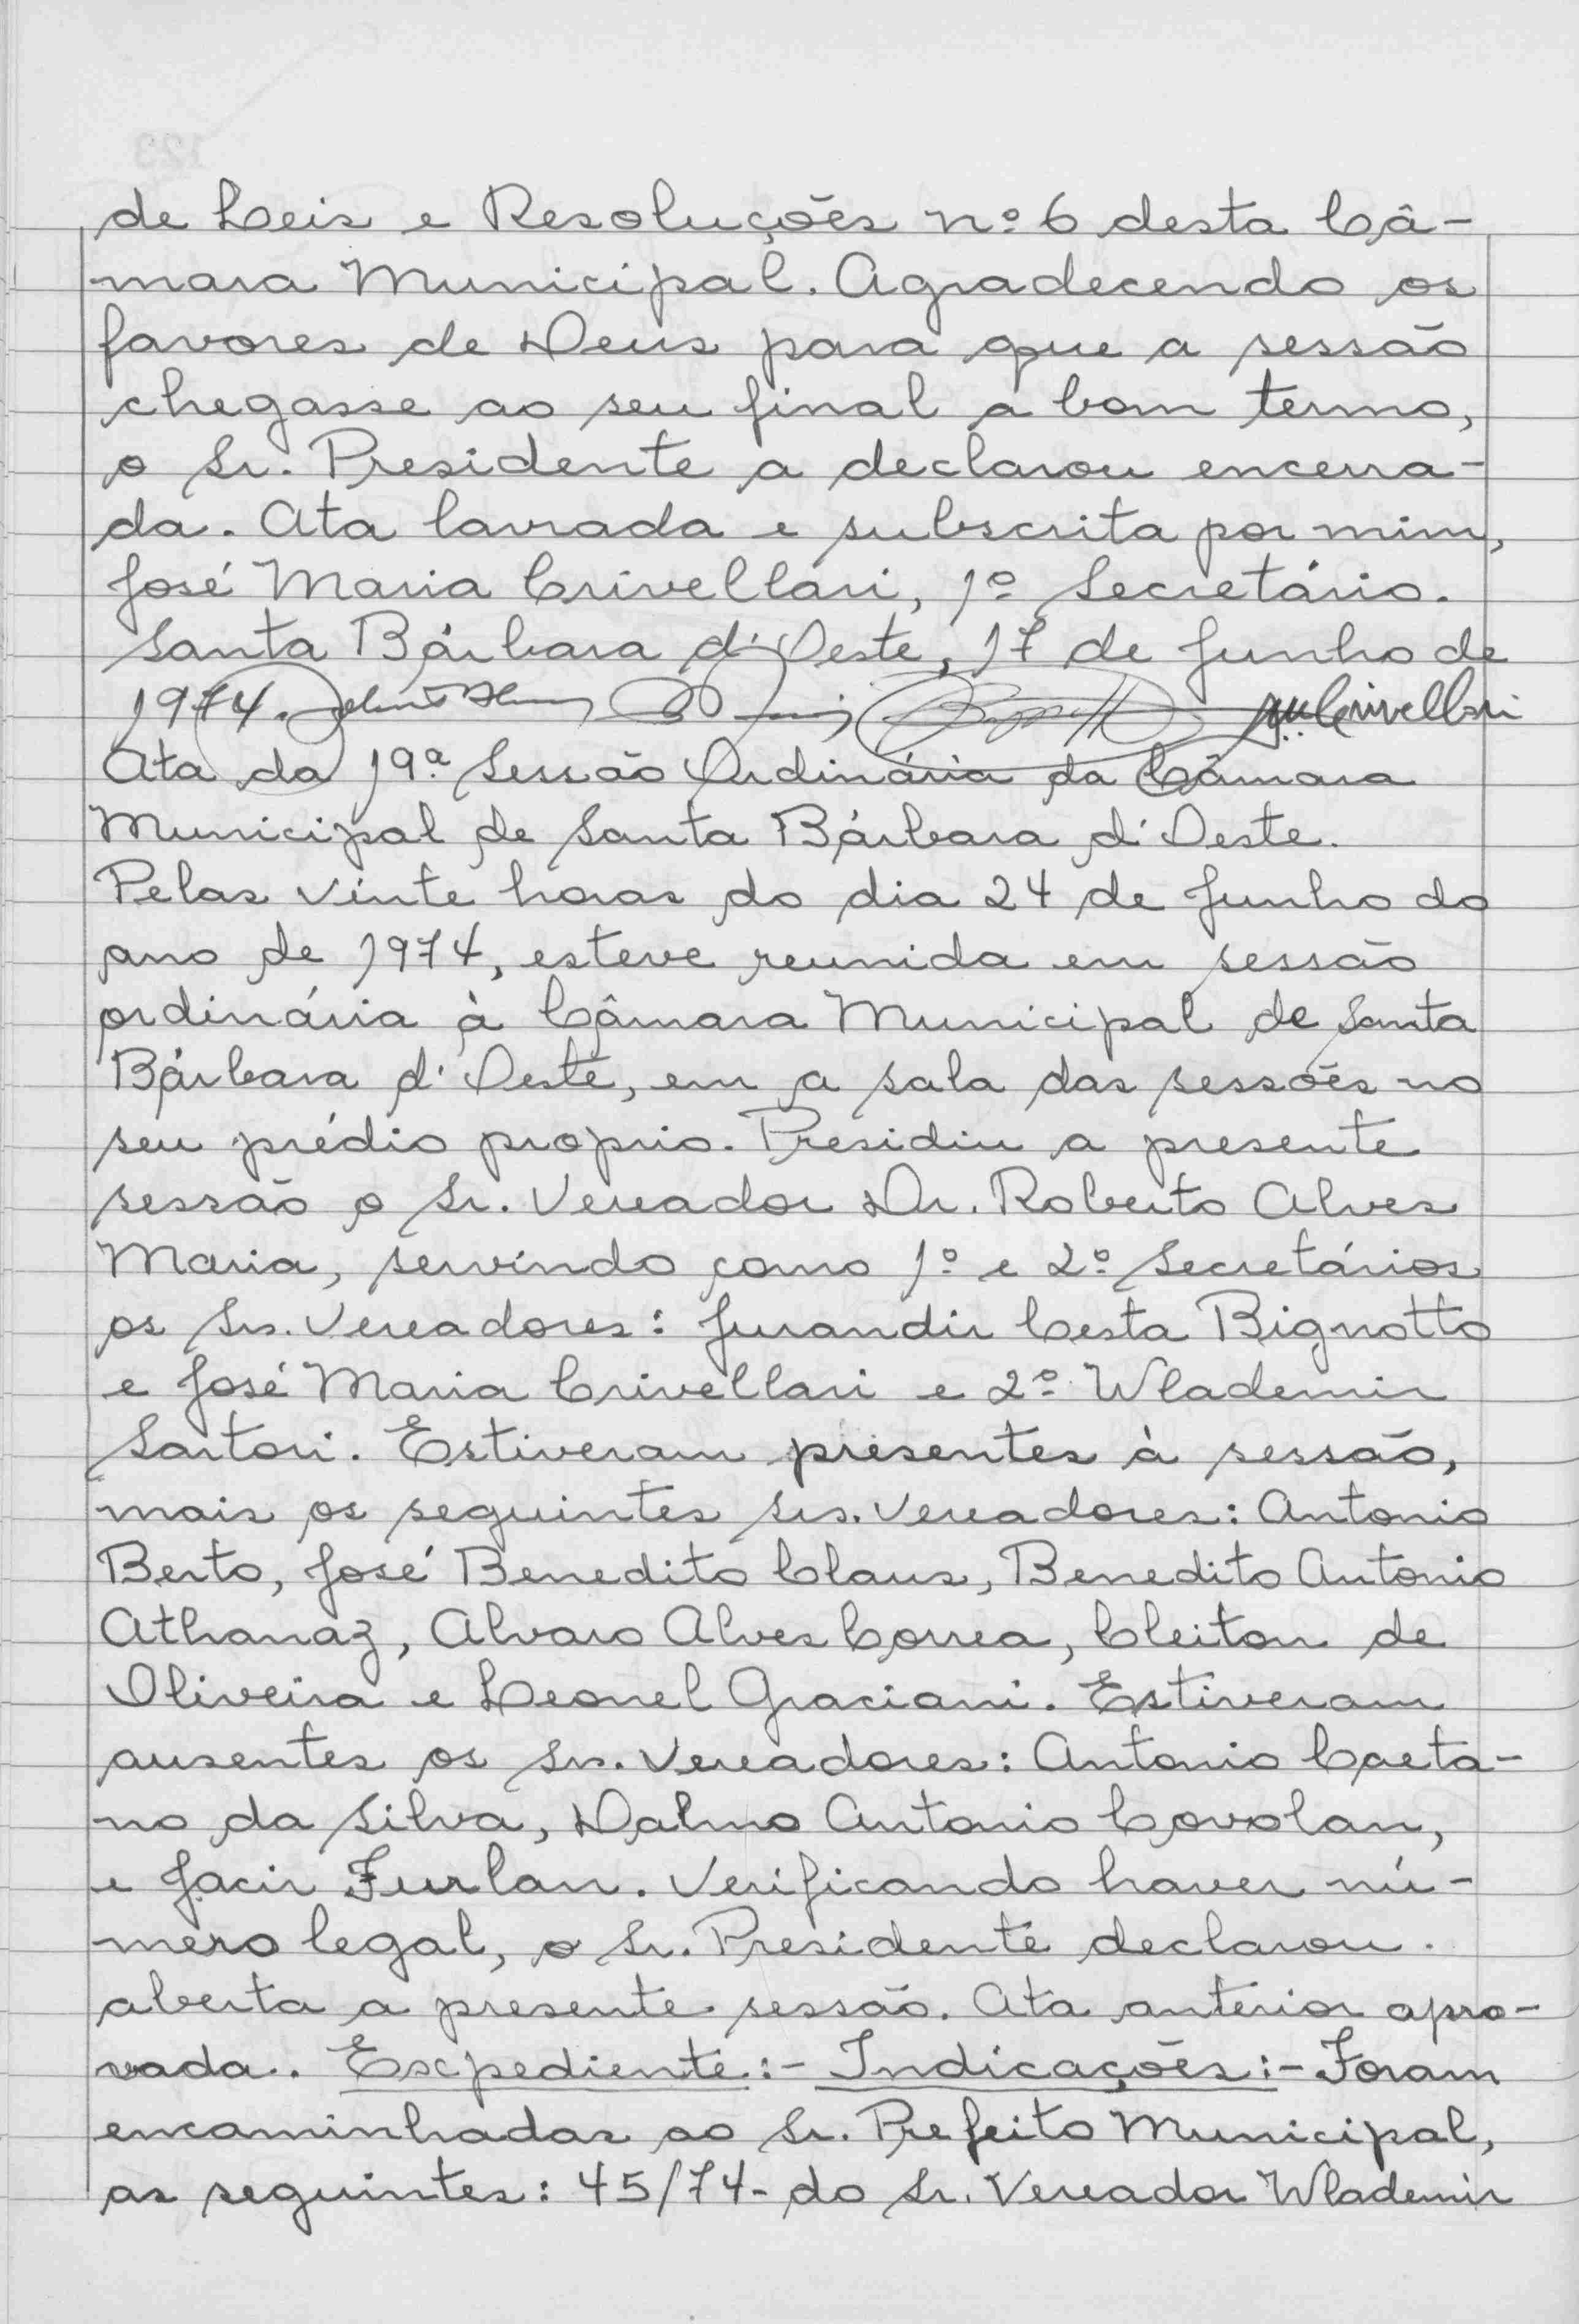 de Leis e Resoluções nº 6 desta Câ-
mara Municipal. Agradecendo os
favores de Deus para que a sessão
chegasse ao seu final a bom termo,
o Sr. Presidente a declarou encerra-
da. Ata lavrada e subscrita por mim,
José Maria Crivellari, 1º Secretário.
Santa Bárbara d'Oeste, 17 de Junho de
1974. JMCrivellari
Ata da 19ª Sessão Ordinária da Câmara
Municipal de Santa Bárbara d'Oeste.
Pelas vinte horas do dia 24 de Junho do
ano de 1974, esteve reunida em sessão
ordinária à Câmara Municipal de Santa
Bárbara d'Oeste, em a sala das sessões no
seu prédio proprio. Presidiu a presente
sessão o Sr. Vereador Dr. Roberto Alves
Maria, servindo como 1º e 2º Secretários
os Srs. Vereadores: Jurandir Cesta Bignotto
e José Maria Crivellari e 2º Wlademir
Sartori. Estiveram presentes à sessão,
mais os seguintes Srs. Vereadores: Antonio
Berto, José Benedito Claus, Benedito Antonio
Athanaz, Alvaro Alves Correa, Cleiton de
Oliveira e Leonel Graciani. Estiveram
ausentes os Srs. Vereadores: Antonio Caeta-
no da Silva, Dalmo Antonio Covolan,
e Jacir Furlan. Verificando haver nú-
mero legal, o Sr. Presidente declarou
aberta a presente sessão. Ata anterior apro-
vada. Expediente:- Indicações:- Foram
encaminhadas ao Sr. Prefeito Municipal,
as seguintes: 45/74- do Sr. Vereador Wlademir